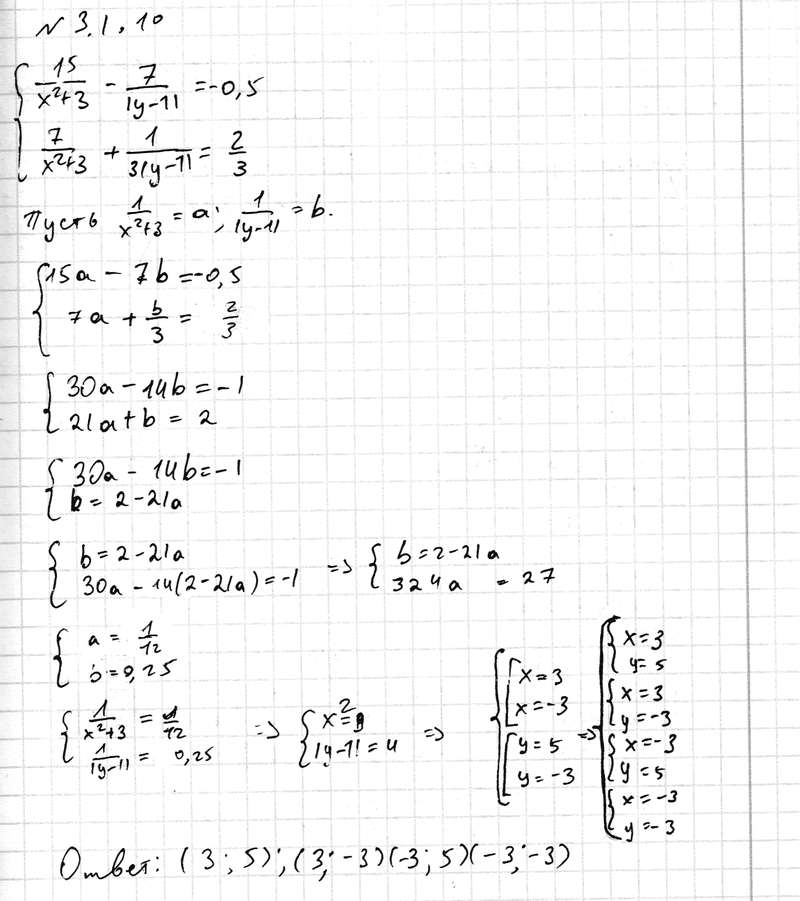 N 3.1.10
{ 15/(x²+3) - 7/|y-1| = -0,5
{ 7/(x²+3) + 1/(3|y-1|) = 2/3
Пусть 1/(x²+3) = a; 1/|y-1| = b.
{ 15a - 7b = -0,5
{ 7a + b/3 = 2/3
{ 30a - 14b = -1
{ 21a + b = 2
{ 30a - 14b = -1
{ b = 2 - 21a
{ b = 2 - 21a
{ 30a - 14(2-21a) = -1 => { b = 2-21a
{ 324a = 27
{ a = 1/12
{ b = 0,25
{ 1/(x²+3) = 1/12
{ 1/|y-1| = 0,25 => { x² = 9
{ |y-1| = 4 => { [ x = 3
[ x = -3
[ y = 5
[ y = -3 => [ { x = 3
{ y = 5
{ x = 3
{ y = -3
{ x = -3
{ y = 5
{ x = -3
{ y = -3
Ответ: (3; 5); (3; -3)(-3; 5)(-3; -3)